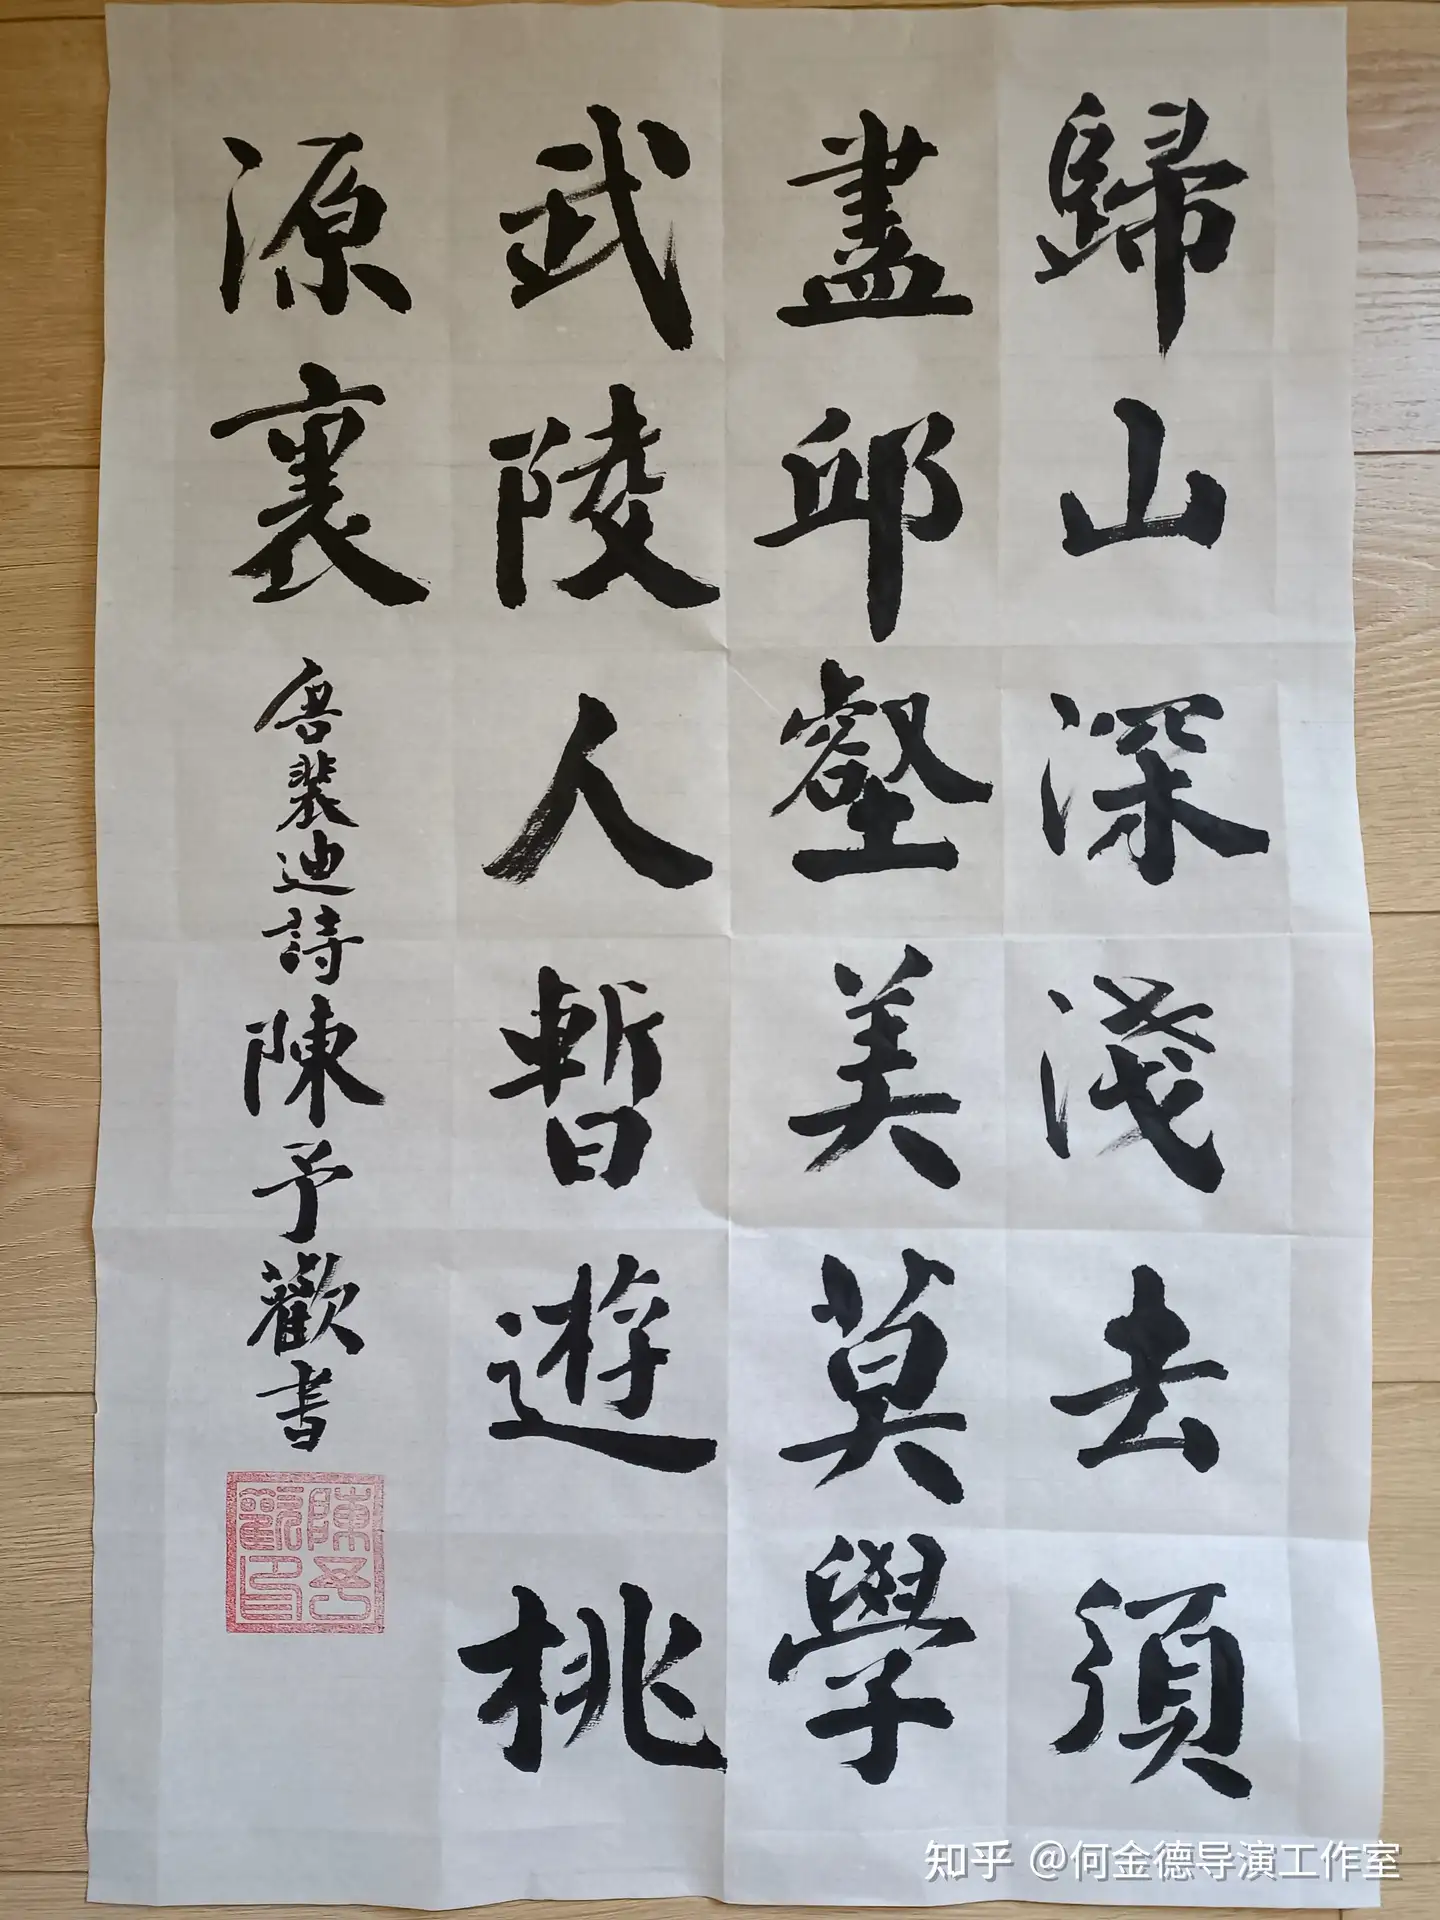 歸山深淺去須
盡邱壑美莫學
武陵人暫遊桃
源裏
裴迪詩陳予歡書
陳予歡印
知乎 @何金德导演工作室